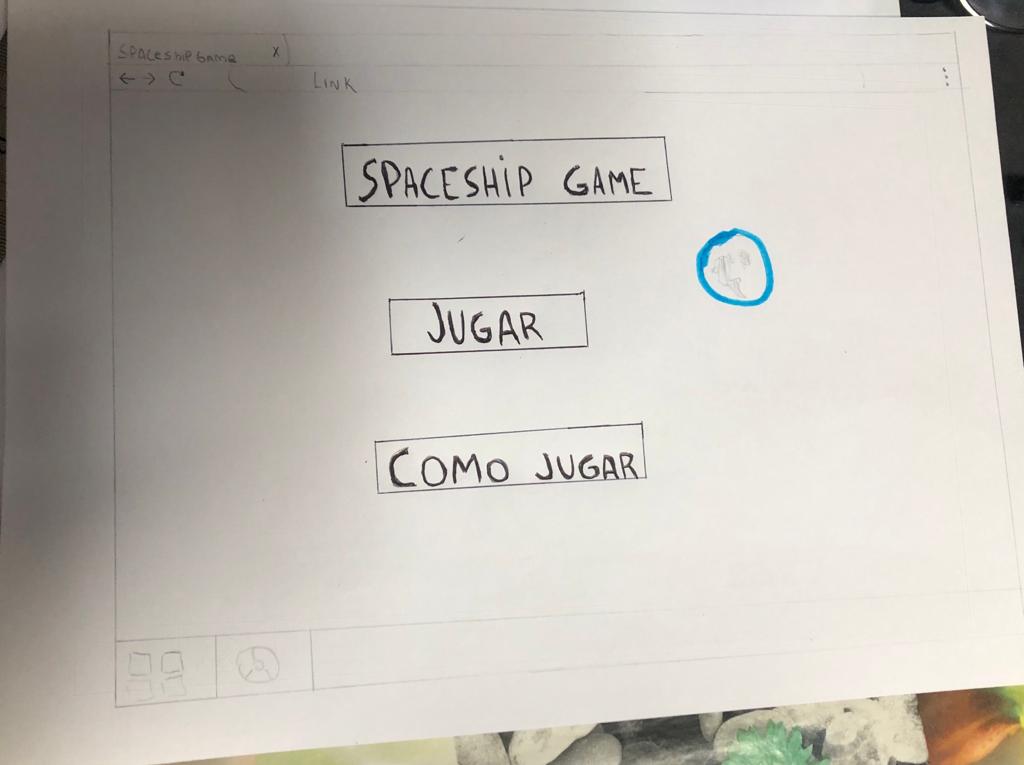 SPACEShip Game x
LINK
SPACESHiP GAME
JUGAR
COMO JUGAR